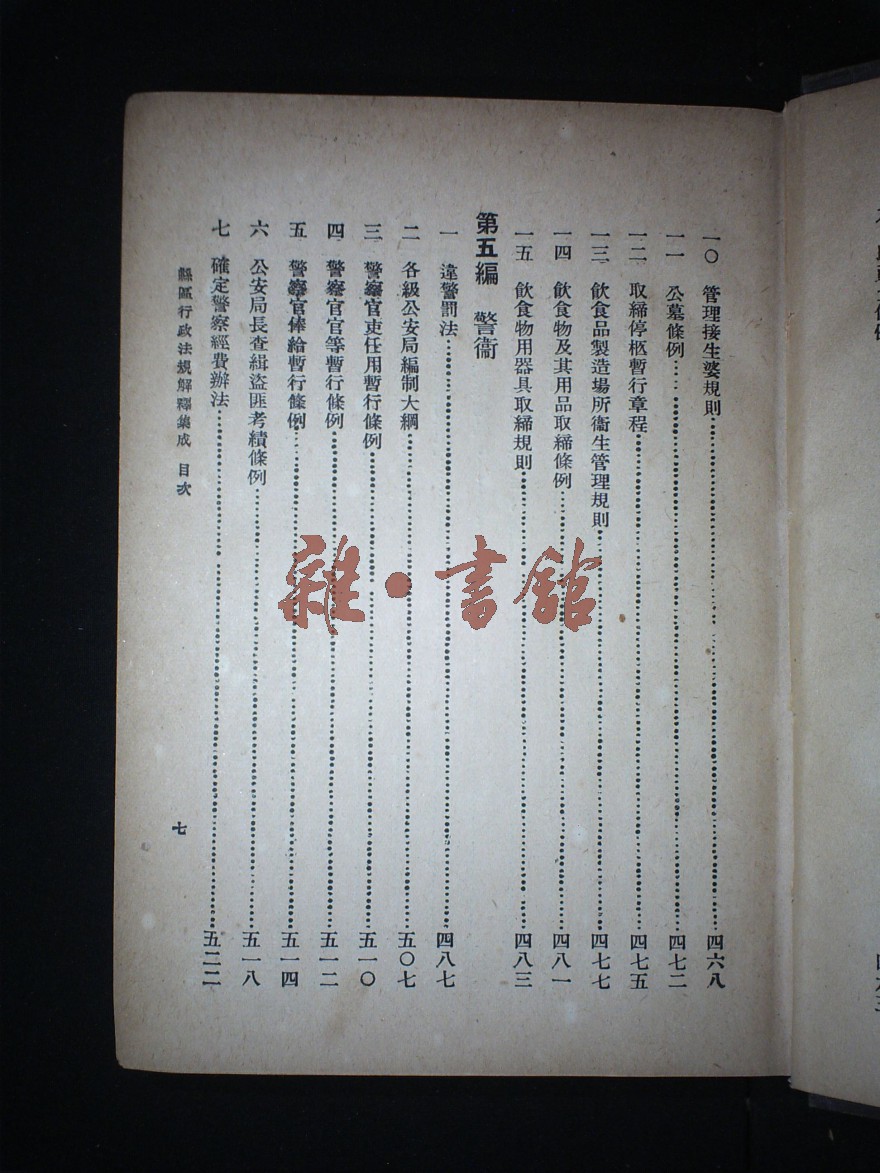 一〇 管理接生婆規則……四六八
一一 公墓條例……四七二
一二 取締停柩暫行章程……四七五
一三 飲食品製造場所衞生管理規則……四七七
一四 飲食物及其用品取締條例……四八一
一五 飲食物用器具取締規則……四八三
第五編 警衞
一 違警罰法……四八七
二 各級公安局編制大綱……五〇七
三 警察官吏任用暫行條例……五一〇
四 警察官官等暫行條例……五一二
五 警察官俸給暫行條例……五一四
六 公安局長查緝盜匪考績條例……五一八
七 確定警察經費辦法……五二二
縣區行政法規解釋集成 目次
七
雜·書館